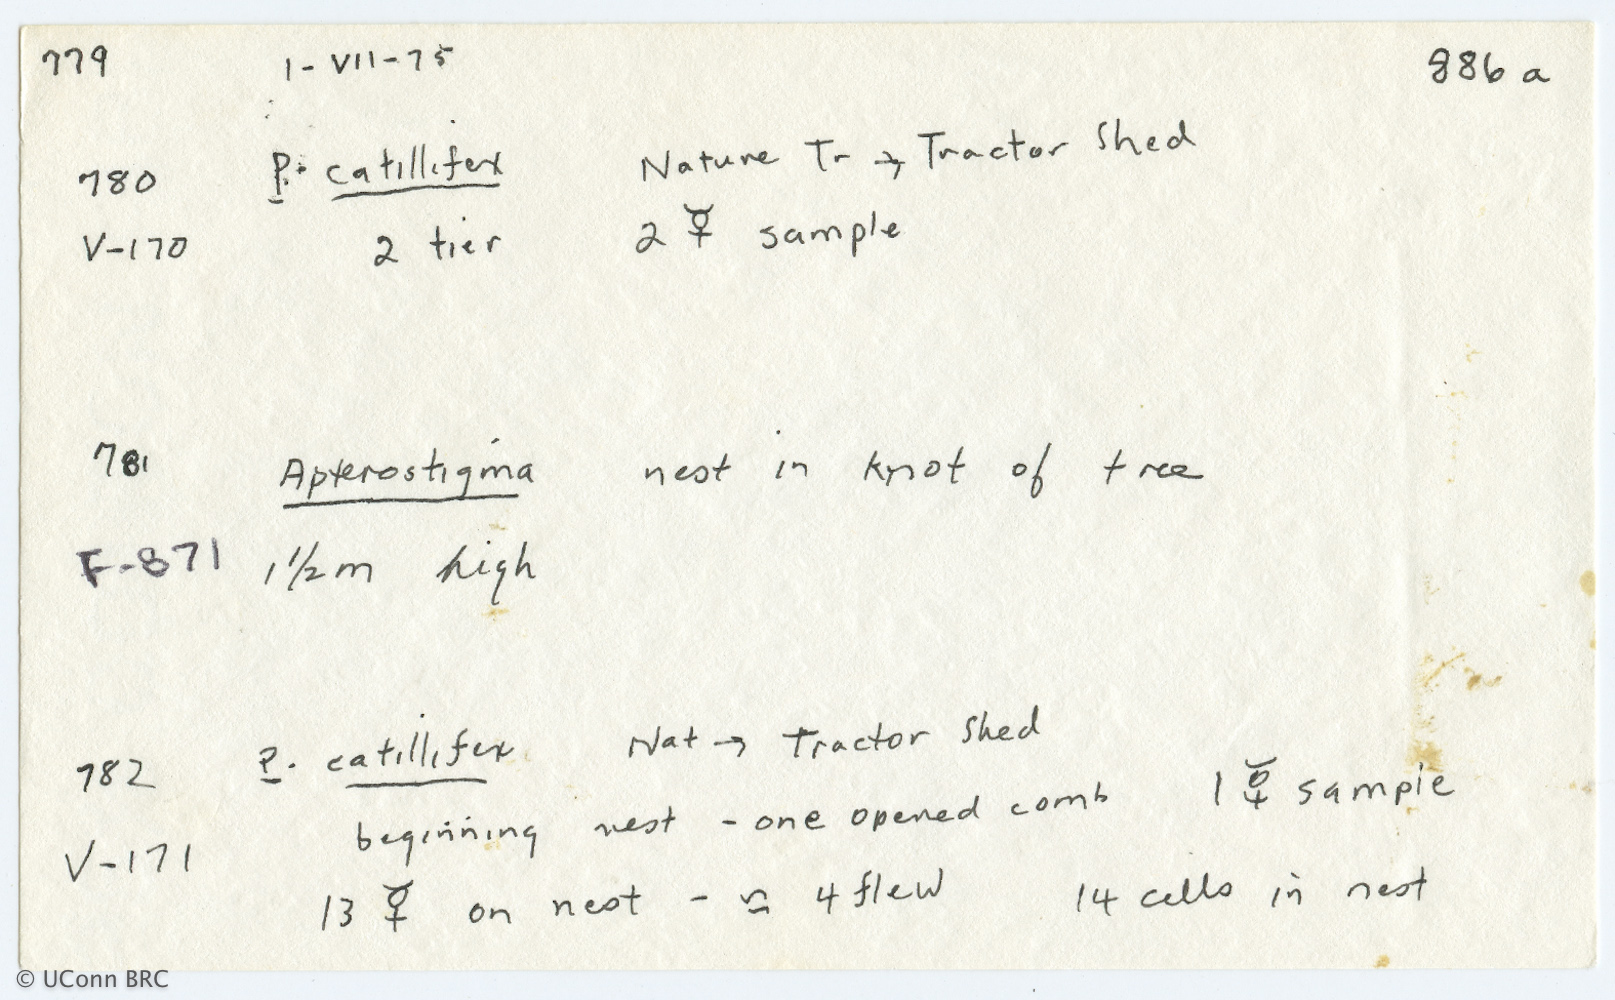 779 1-VII-75 886a
780 P. catillifex Nature Tr → Tractor Shed
V-170 2 tier 2 ☿ sample
781 Apterostigma nest in knot of tree
F-871 1½m high
782 P. catillifex Nat → Tractor Shed
beginning nest - one opened comb 1 ☿ sample
V-171
13 ☿ on nest - ≈ 4 flew 14 cells in nest
© UConn BRC